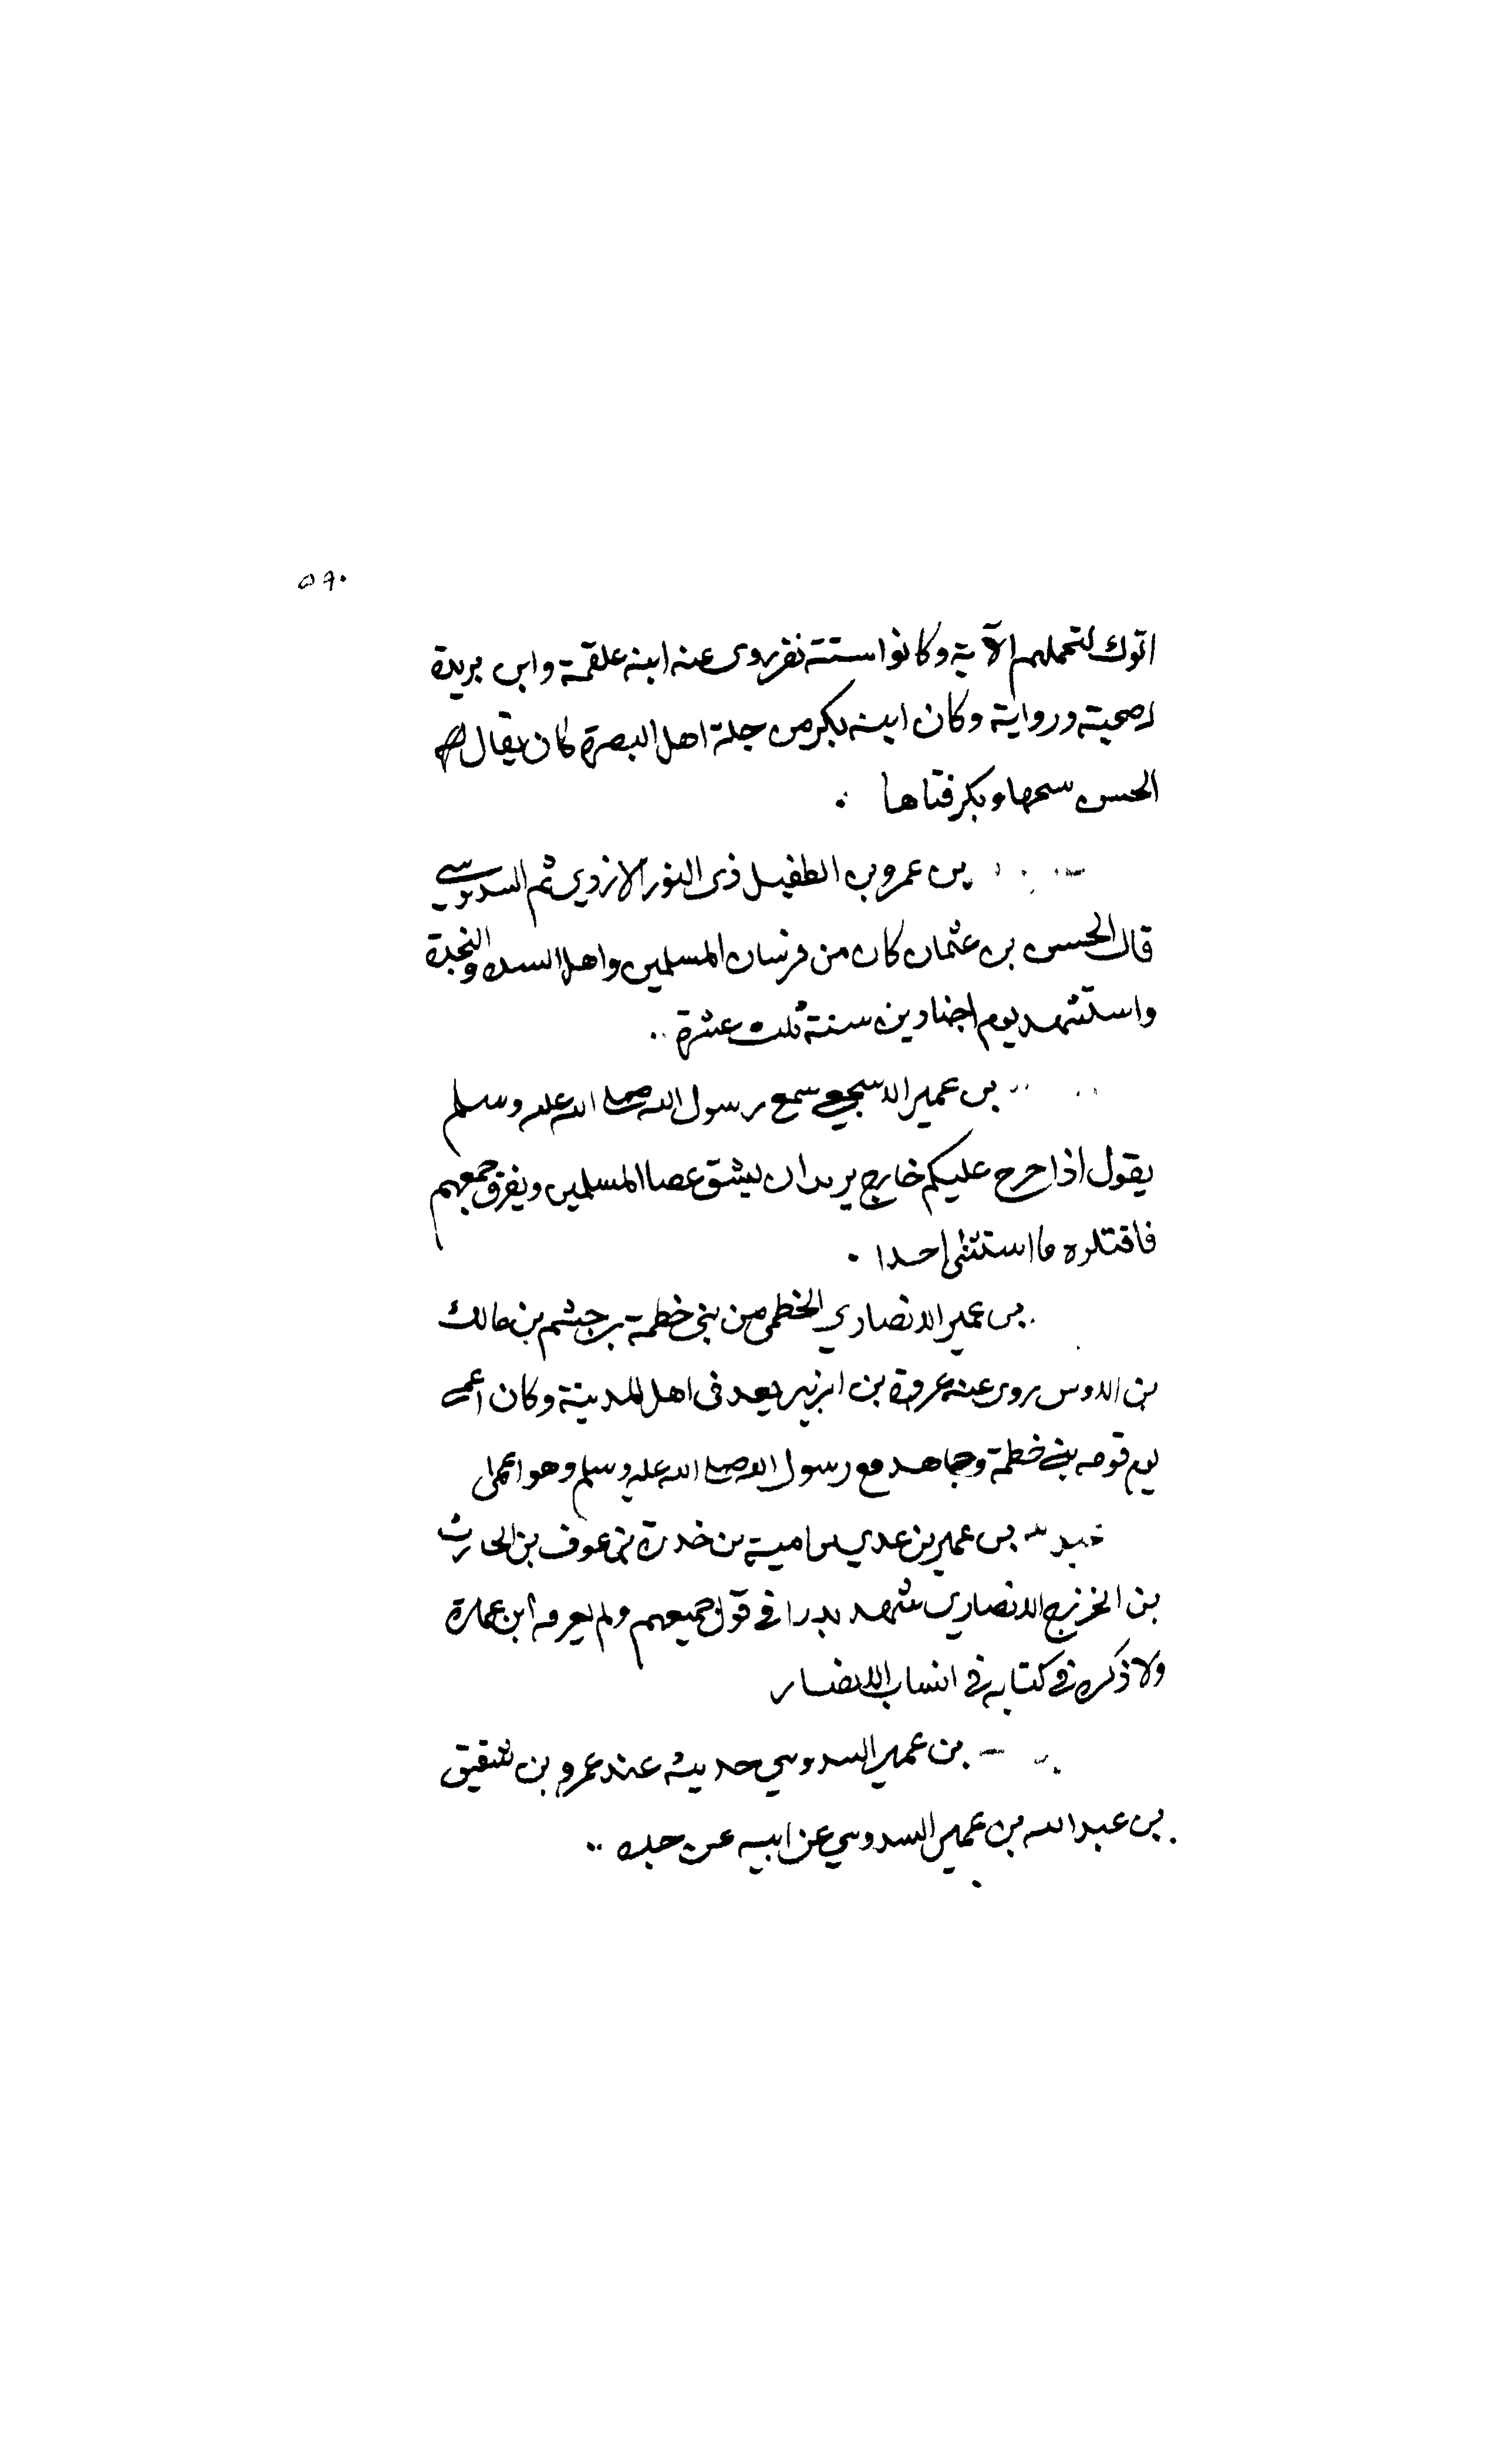 ٥٩٠
اتوك لتحملهم الآية وكانوا ستة نفر روى عنه ابنه علقمة وابن بريدة
له صحبة ورواية وكان ابنه بكر من جلة اهل البصرة كان يقال
الحسن سحها وبكر فتاها
بن عمرو بن الطفيل ذى النور الازدي ثم السدوسي
قال الحسن بن عثمان كان من فرسان المسلمين واهل السده والنجدة
واستشهد يوم اجنادين سنة ثلث عشرة
بن عمير الاشجعي سمع رسول الله صلى الله عليه وسلم
يقول اذا خرج عليكم خارج يريد ان يشق عصا المسلمين ويفرق جمعهم
فاقتلوه ما استثنى احدا
بن عمير الانصاري الخطمى من بنى خطمة بن جشم بن مالك
بن الاوس روى عنه عروة بن الزبير يعد فى اهل المدينة وكان اعمى
يوم قومه بني خطمة وجاهد مع رسول الله صلى الله عليه وسلم وهو اعمى
بن عمير بن عدي بن امية بن خدرة بن عوف بن الحارث
بن الخزرج الانصاري شهد بدرا في قول جميعهم ولم يعرفه ابن عمارة
ولا ذكره في كتابه في انساب الانصار
بن عمير السدوسي حديثه عند عمرو بن شقيق
بن عبد الله بن عمير السدوسي عن ابيه عن جده